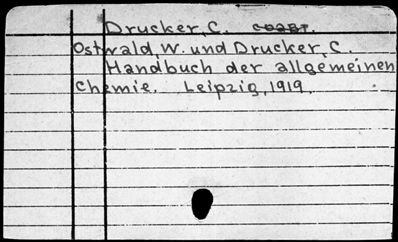 Drucker, C.
Ostwald, W. und Drucker, C.
Handbuch der allgemeinen
Chemie. Leipzig, 1919.